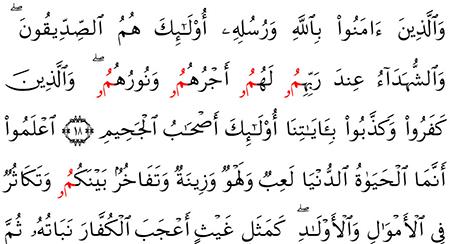 وَٱلَّذِينَ ءَامَنُوا۟ بِٱللَّهِ وَرُسُلِهِۦ أُو۟لَٰٓئِكَ هُمُ ٱلصِّدِّيقُونَۖ
وَٱلشُّهَدَآءُ عِندَ رَبِّهِمُۥ لَهُمُۥ أَجْرُهُمُۥ وَنُورُهُمُۥۖ وَٱلَّذِينَ
كَفَرُوا۟ وَكَذَّبُوا۟ بِـَٔايَٰتِنَا أُو۟لَٰٓئِكَ أَصْحَٰبُ ٱلْجَحِيمِ ١٨ ٱعْلَمُوا۟
أَنَّمَا ٱلْحَيَوٰةُ ٱلدُّنْيَا لَعِبٌ وَلَهْوٌ وَزِينَةٌ وَتَفَاخُرٌۢ بَيْنَكُمُۥ وَتَكَاثُرٌ
فِى ٱلْأَمْوَٰلِ وَٱلْأَوْلَٰدِۖ كَمَثَلِ غَيْثٍ أَعْجَبَ ٱلْكُفَّارَ نَبَاتُهُۥ ثُمَّ